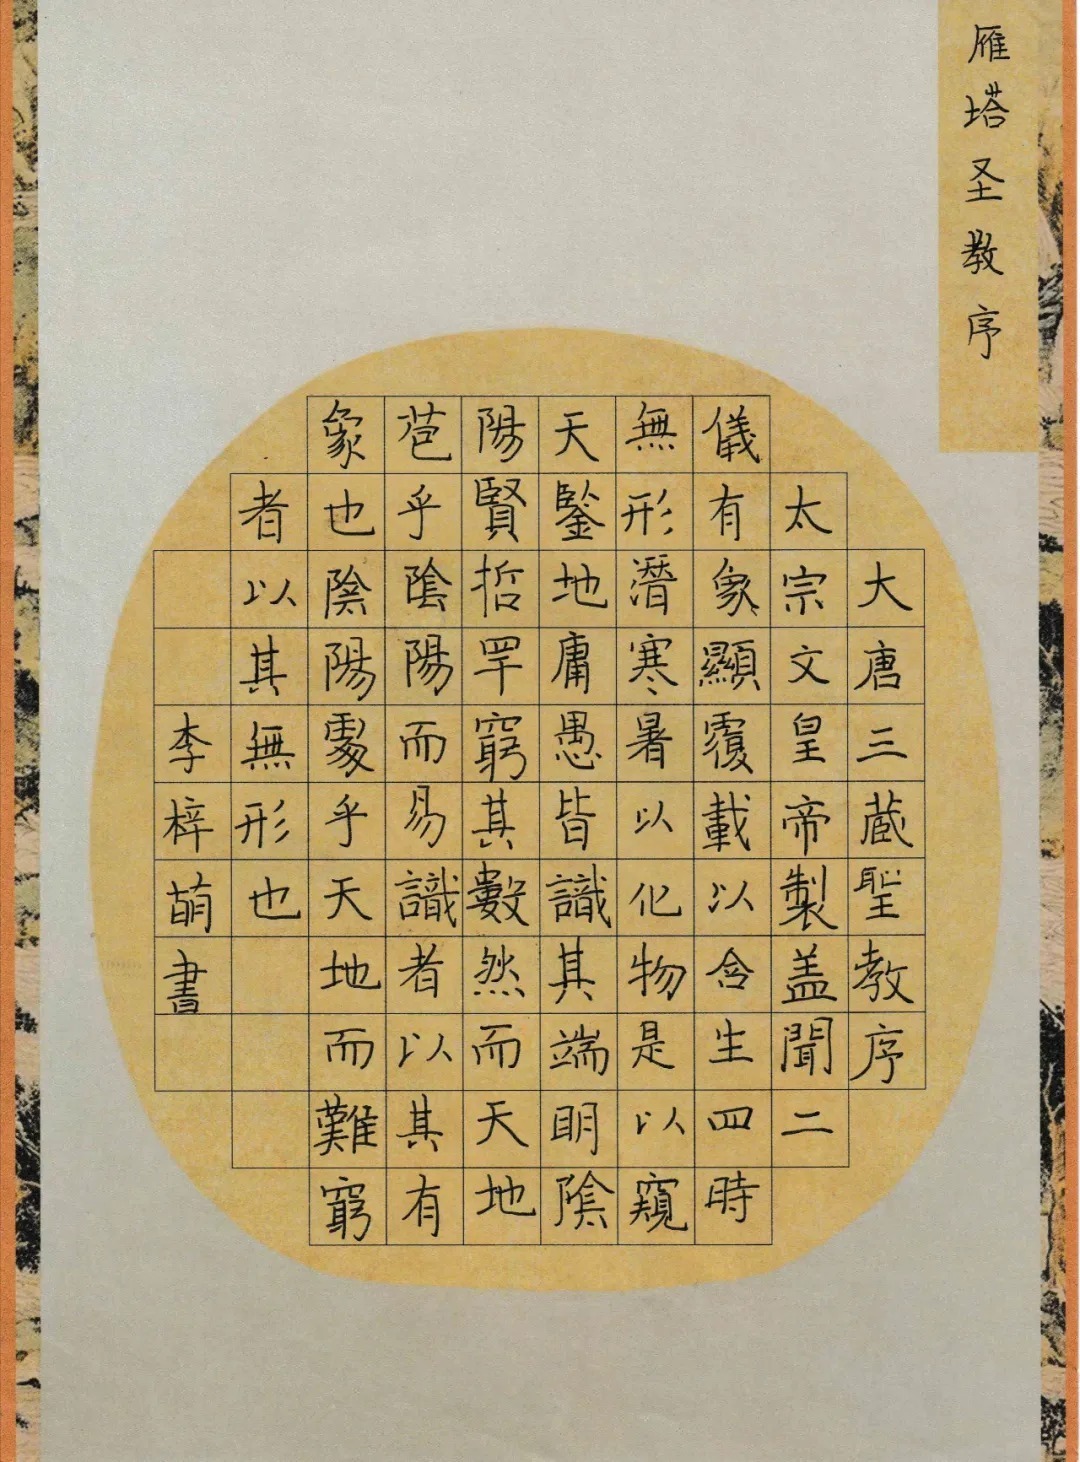 雁塔圣教序
大唐三蔵聖教序
太宗文皇帝製盖聞二
儀有象顯覆載以含生四時
無形潛寒暑以化物是以窺
天鑒地庸愚皆識其端明陰
陽賢哲罕窮其數然而天地
苞乎陰陽而易識者以其有
象也陰陽處乎天地而難窮
者以其無形也
李梓萌書